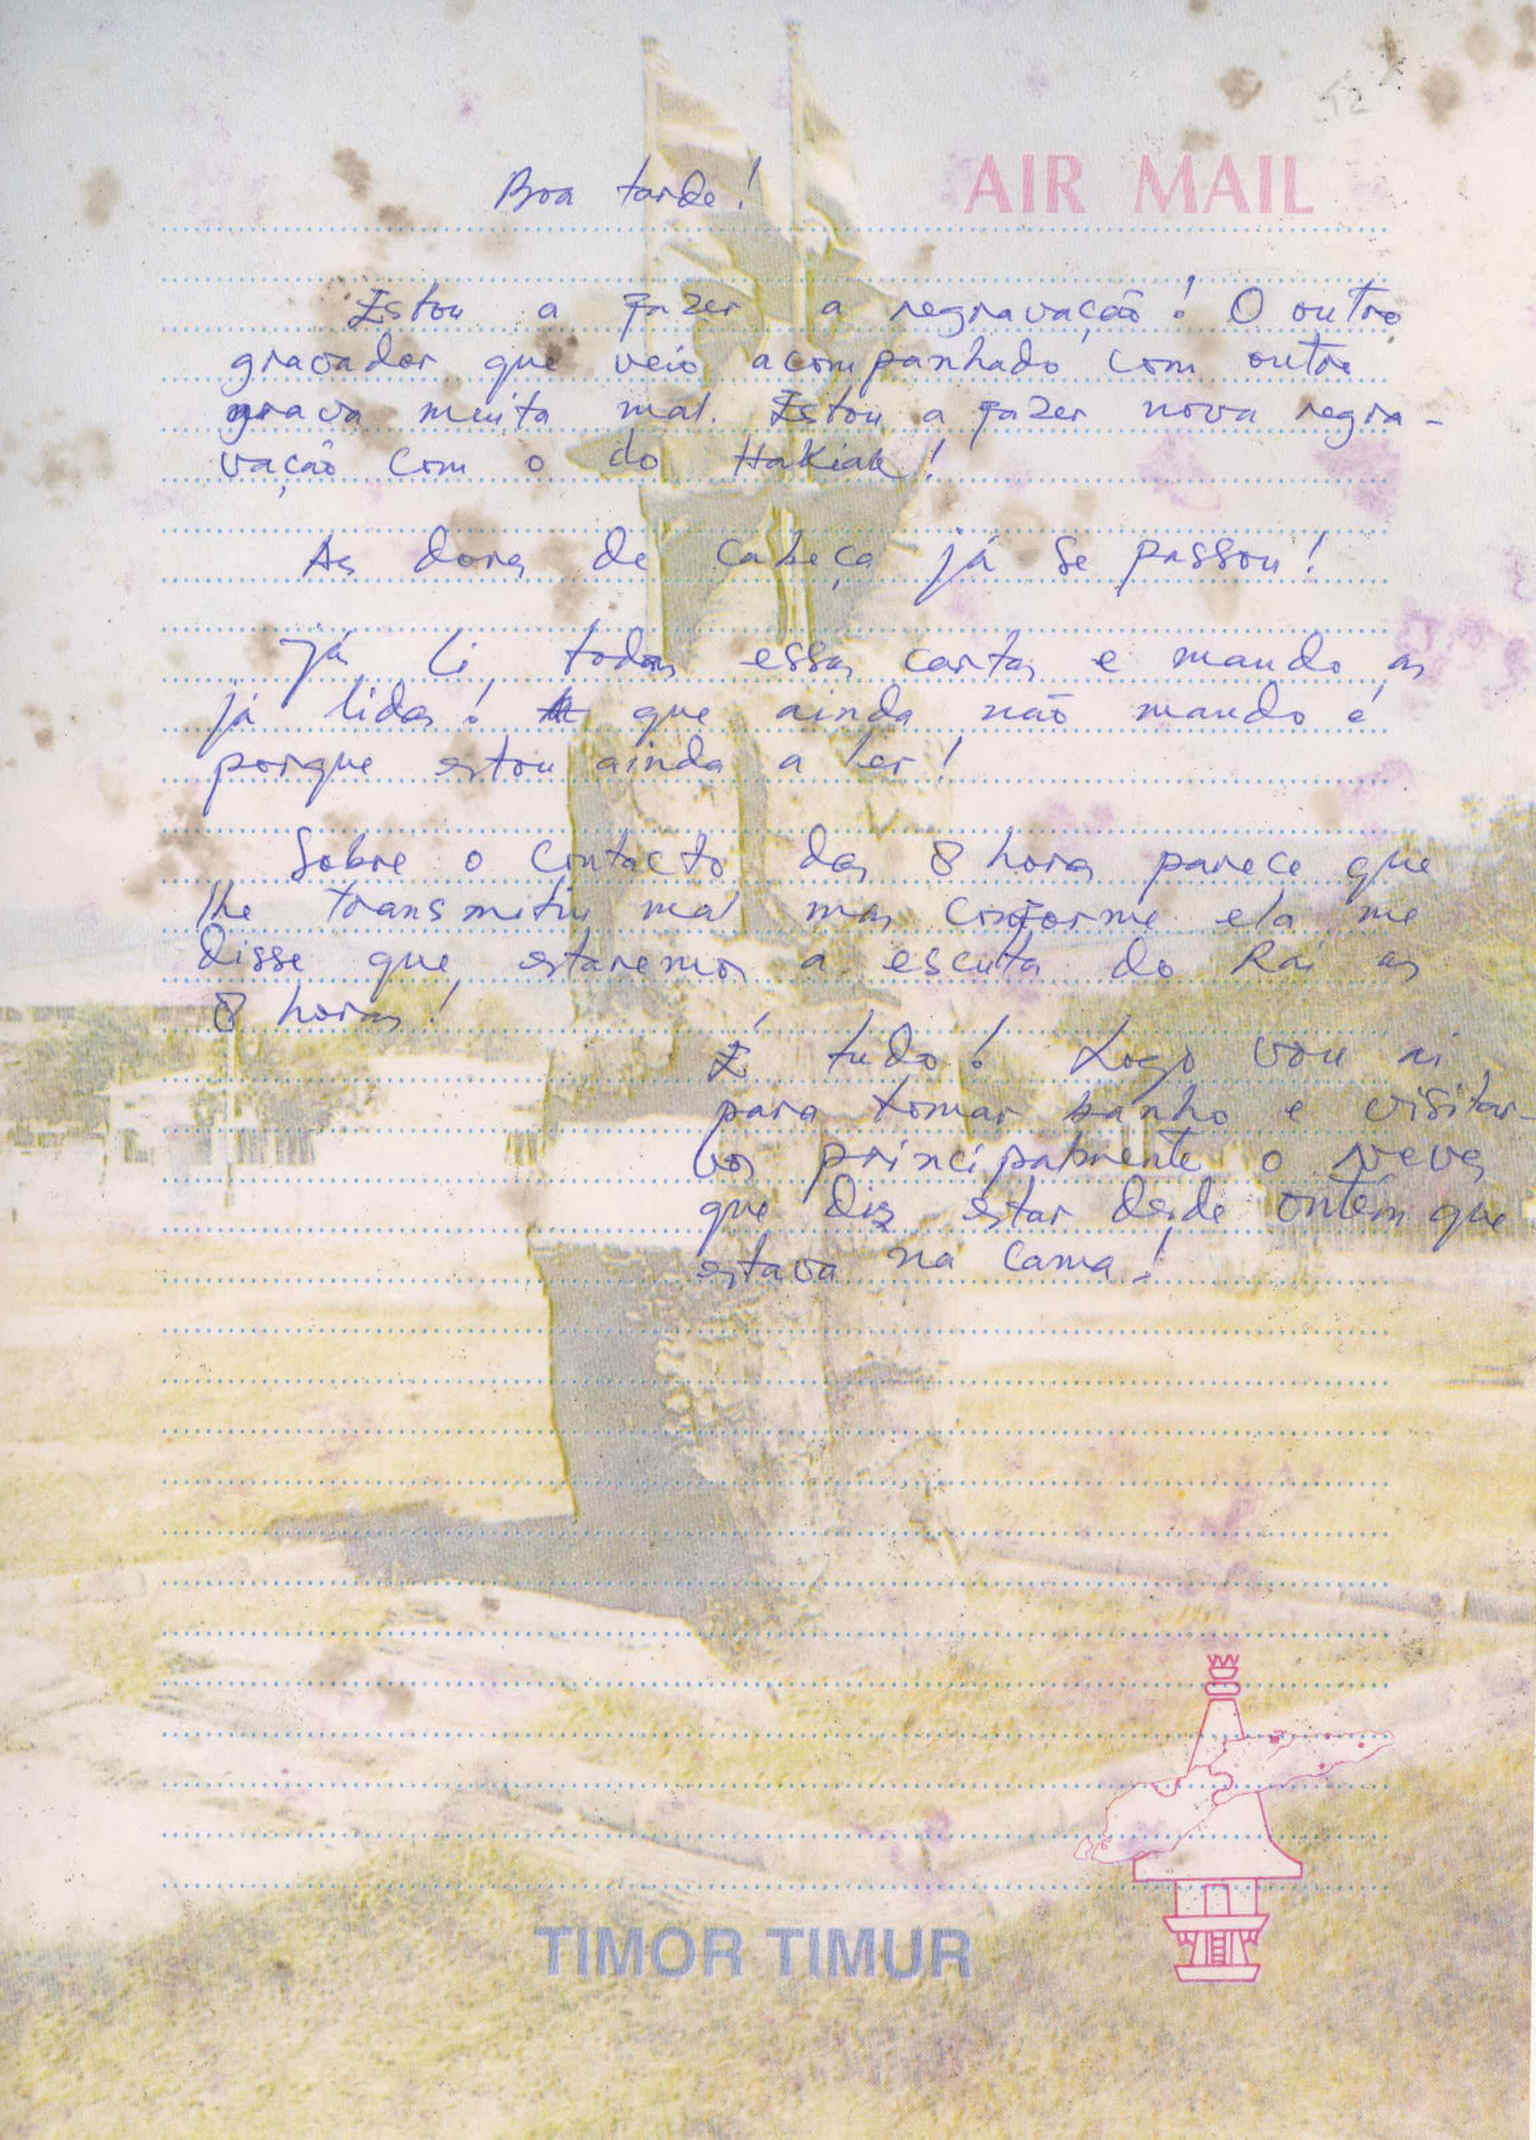 AIR MAIL
Boa tarde!
Estou a fazer a regravação! O outro
gravador que veio acompanhado com outro
grava muita mal. Estou a fazer nova regra-
vação com o do Hakiak!
As dores de cabeça já se passou!
Já li todas essas cartas e mando as
já lidas! que ainda não mando é
porque estou ainda a ler!
Sobre o contacto das 8 horas parece que
lhe transmitiu mal mas conforme ela me
disse que estaremos a escuta do Rai as
8 horas!
É tudo! Logo vou ai
para tomar banho e visitar-
vos principalmente o
que diz estar desde ontem que
estava na cama!
TIMOR TIMUR